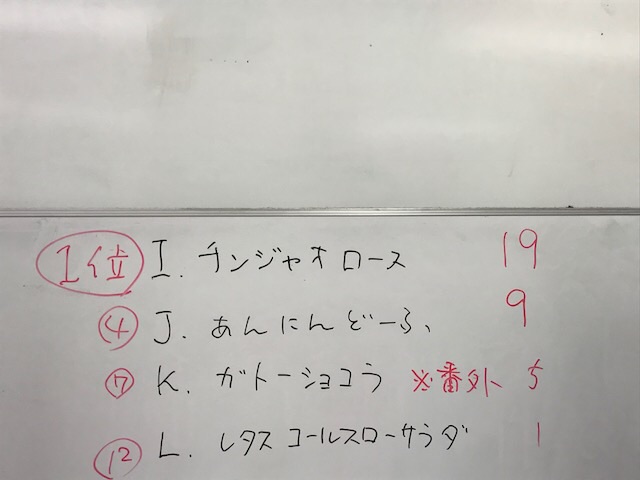 1位 I. チンジャオロース 19
④ J. あんにんどーふ、 9
⑦ K. ガトーショコラ ※番外 5
⑫ L. レタスコールスローサラダ 1